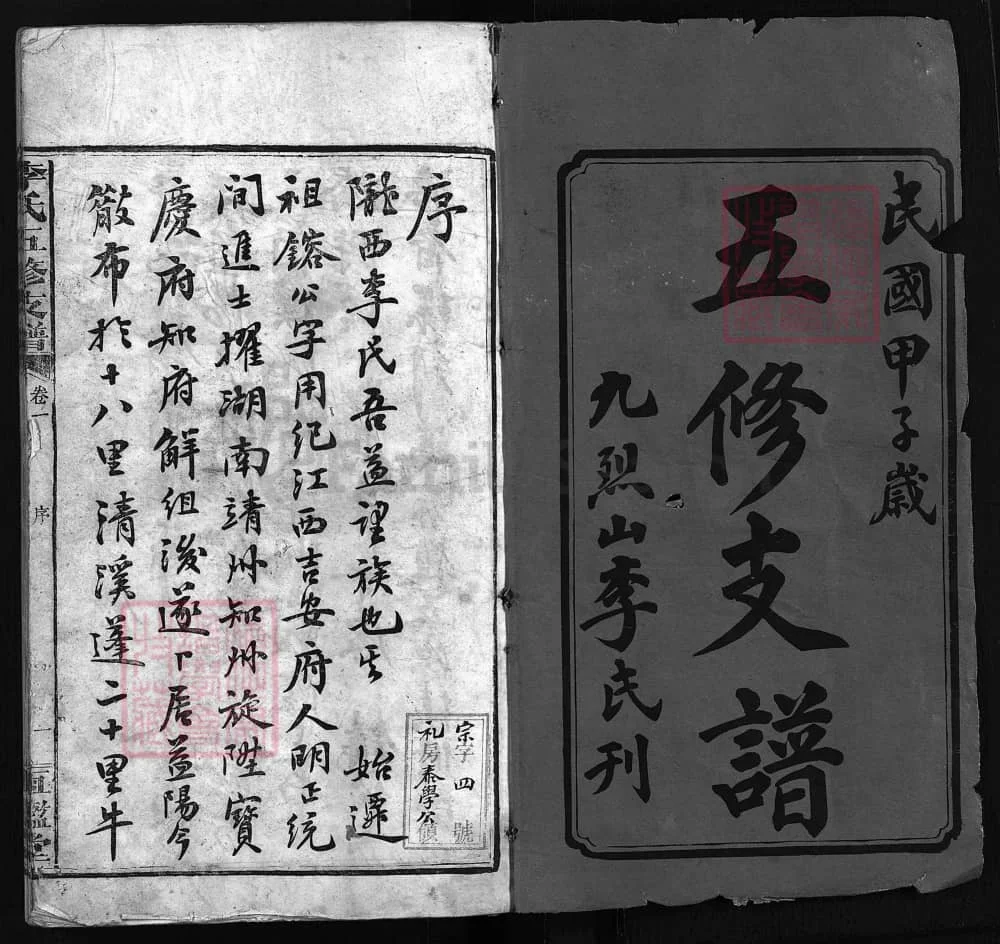 民國甲子歲
五修支譜
九烈山李氏刊
序
隴西李氏吾益望族也其 始遷
祖鎔公字用紀江西吉安府人明正統
間進士擢湖南靖州知州旋陞寶
慶府知府解組後遂卜居益陽今
散布於十八里清溪蓬二十里牛
宗字四號
礼房泰學公領
李氏五修支譜 卷一 序 一